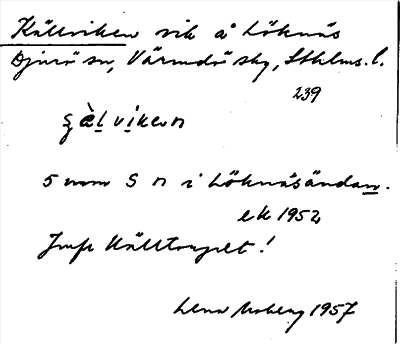 Källviken vik å Löknäs
Djurö sn, Värmdö skg, Sthlms. l.
239
viken
5 mm S n i Löknäsändan.
ek 1952
Jmfr Källtorpet!
1957